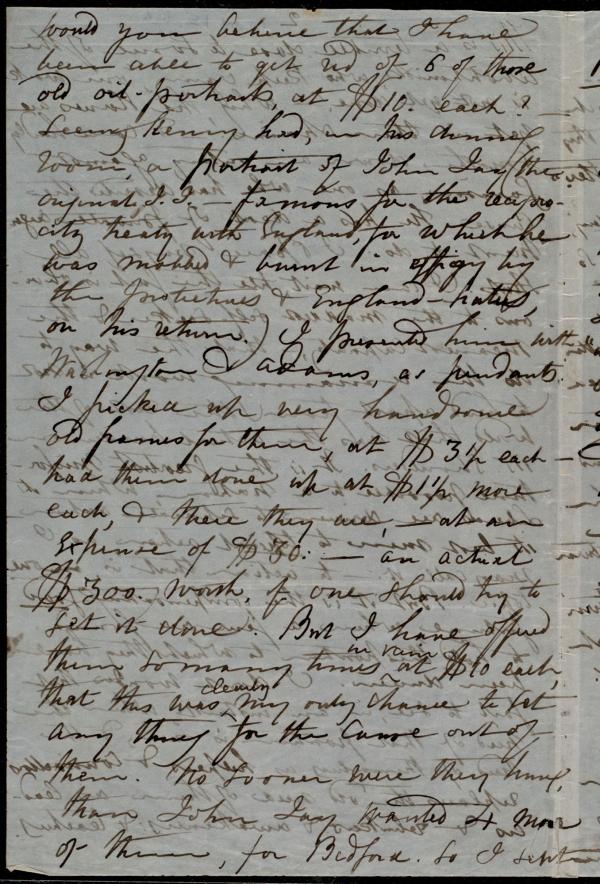 would you believe that I have
been able to get rid of 6 of those
old oil-portraits, at $10. each?
Seeing Henry had, in his dining
room, a portrait of John Jay (the
original J.J. — famous for the recipro-
city treaty with England, for which he
was mobbed & burnt in effigy by
the protectives & England-haters,
on his return.) I presented him with
Washington & Adams, as pendants.
I picked up very handsome
old frames for them, at $3½ each —
had them done up at $1½ more
each, & there they are, — at an
expense of $30: — an actual
$300. worth, if one should try to
get it done. But I have offered
them so many times in vain at $10 each,
that this was clearly my only chance to get
any thing for the Cause out of
them. No sooner were they hung,
than John Jay wanted 4 more
of them, for Bedford. So I sent